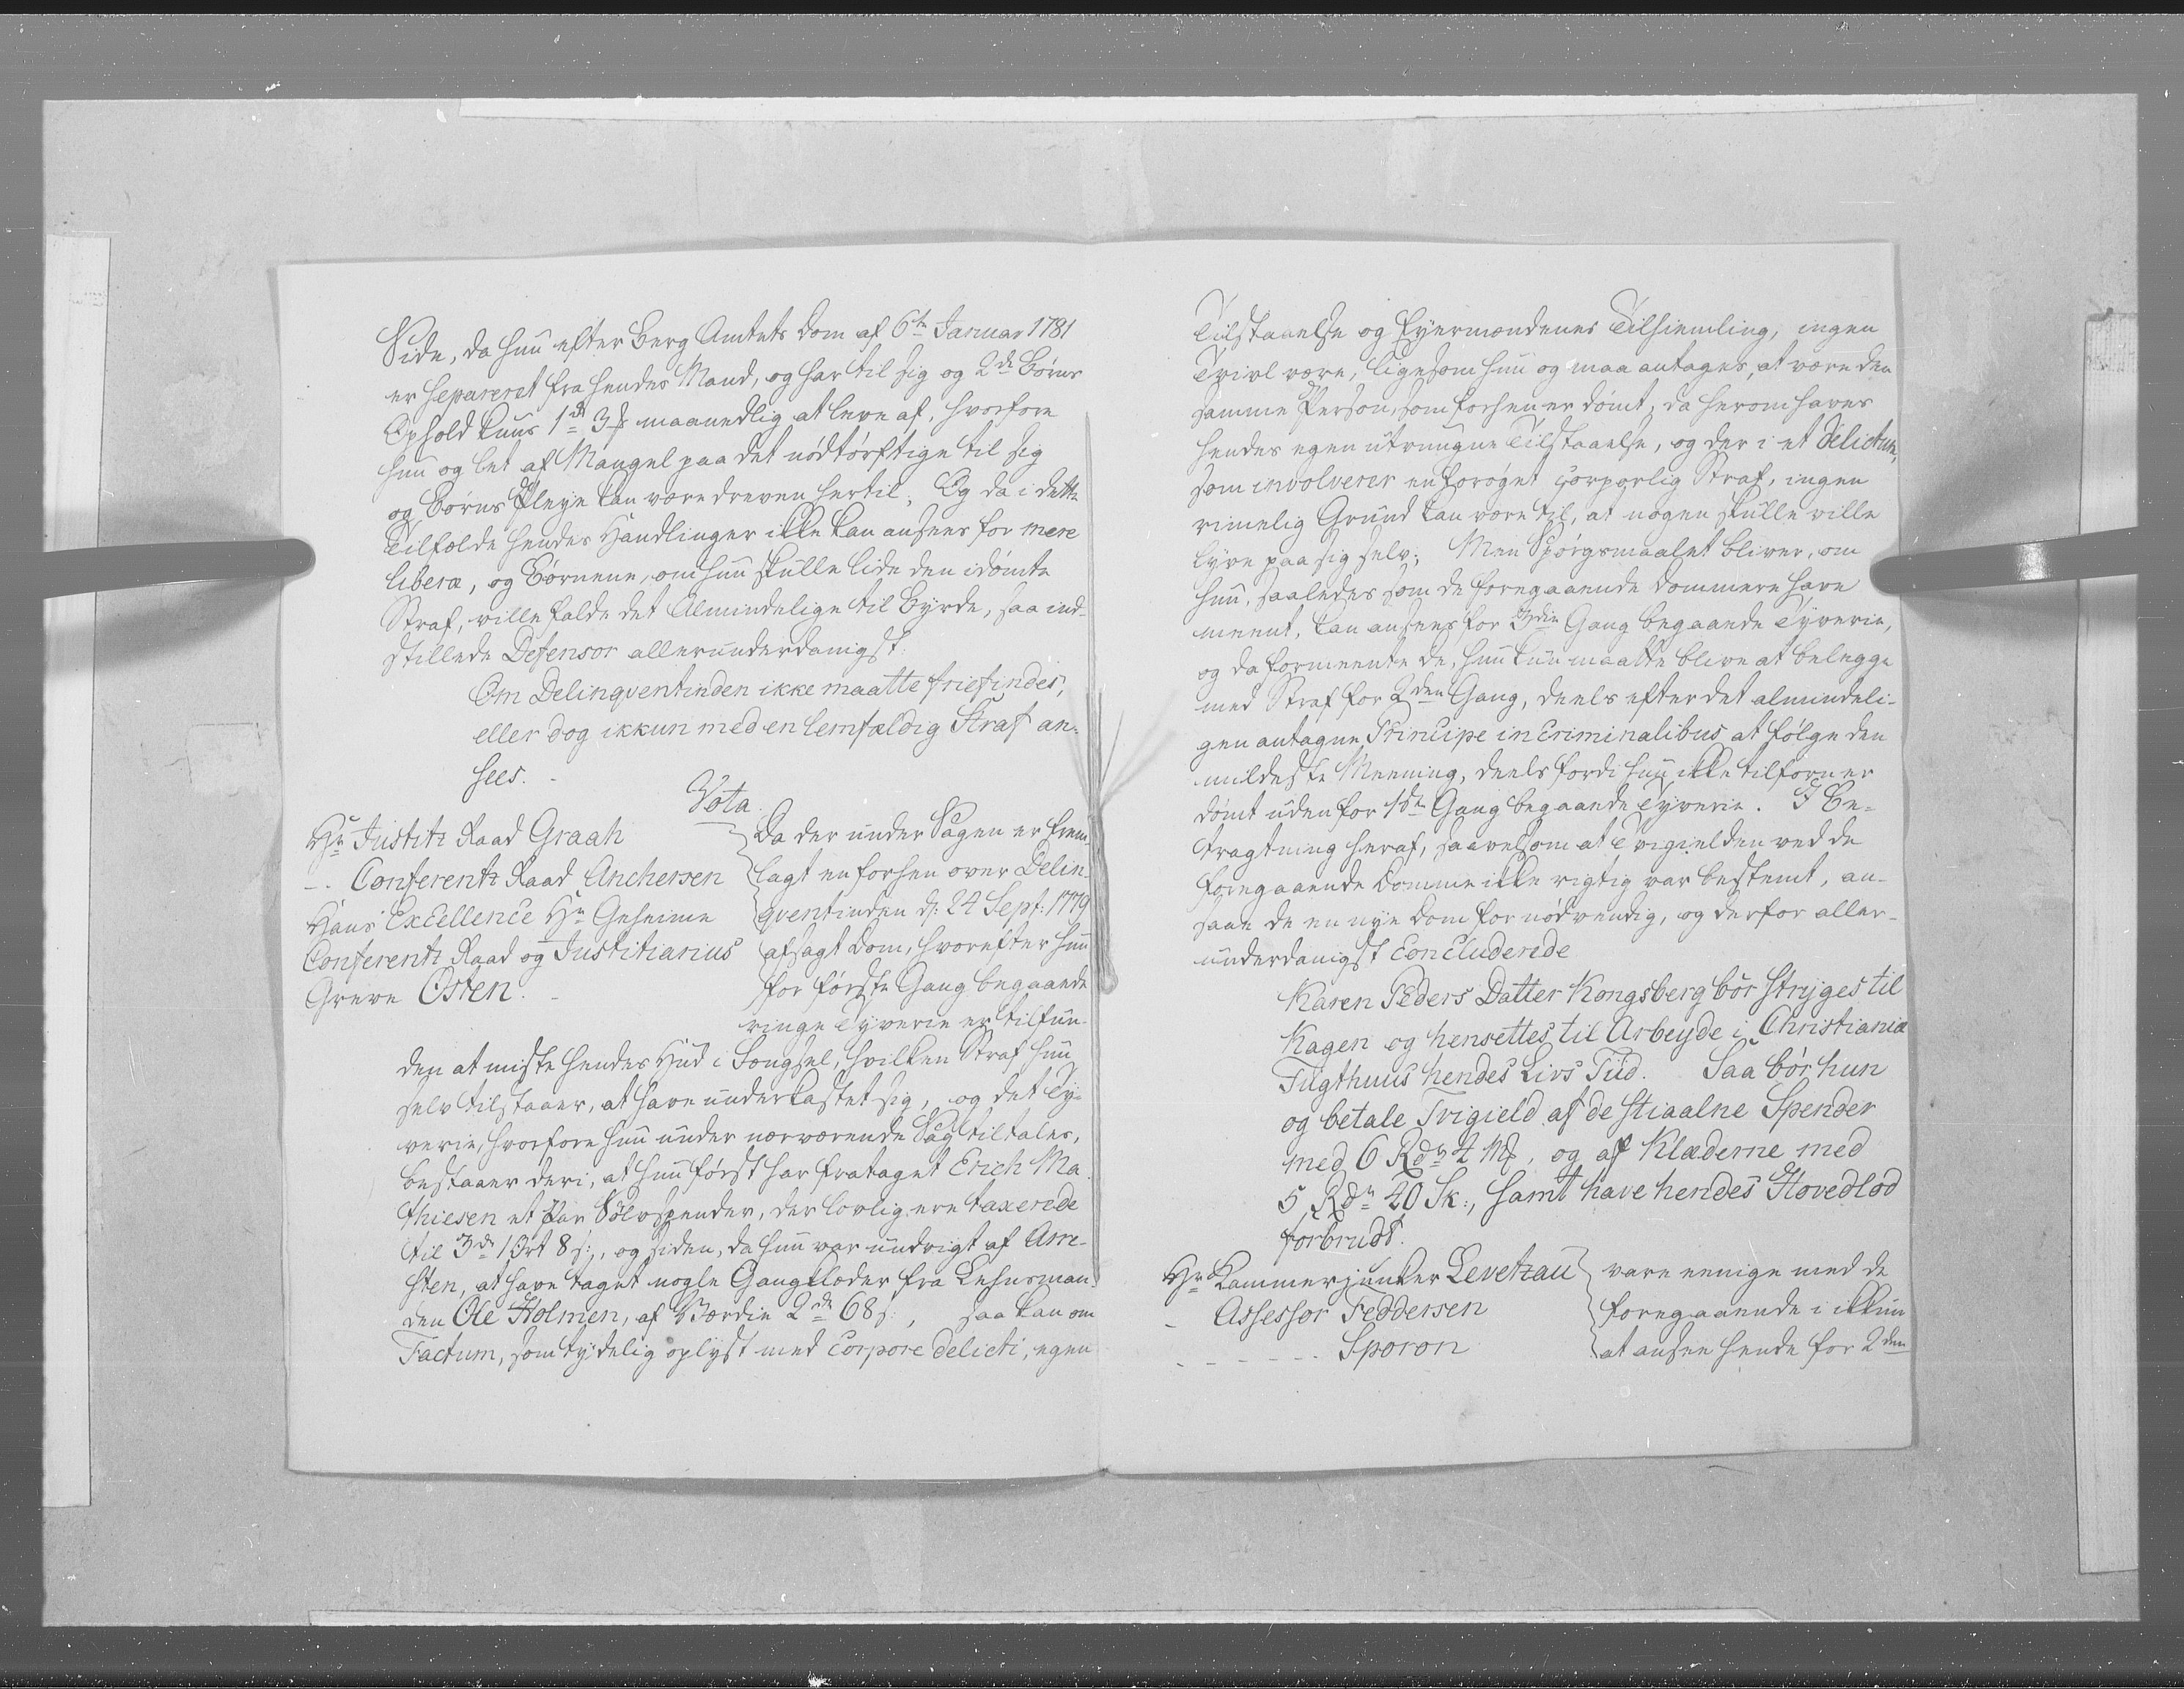 Side, da hun efter Berg Amtets Dom af 6te Januar 1781
er separeret fra hendes Mand, og har til sig og 2de Børns
Ophold kuns 1 rd 3 ß maanedlig at leve af, hvorfore
hun og let af Mangel paa det nødtørftige til sig
og Børns Pleye kan være dreven hertil; Og da i dette
Tilfælde hendes Handlinger ikke kan ansees for mere
libera, og Børnene, om hun skulle lide den idømte
Straf, ville falde det Almindelige til Byrde, saa ind-
stillede Defensor allerunderdanigst:
Om Delinqventinden ikke maatte friefindes,
eller dog ikkun med en lemfældig Straf an-
sees.
Vota.
Hr Justitz Raad Graah
-. Conferentz Raad Anchersen
Hans Excellence Hr Geheime
Conferentz Raad og Justitiarius
Greve Osten.
Da der under Sagen er frem-
lagt en forhen over Delin-
qventinden d: 24 Sept: 1779
afsagt Dom, hvorefter hun
for første Gang begaaende
ringe Tyverie er tilfun-
den at miste hendes Hud i Fængsel, hvilken Straf hun
selv tilstaaer, at have underkastet sig, og det Ty-
verie, hvorfore hun under nærværende Sag tiltales,
bestaaer deri, at hun først har frataget Erich Ma-
thiesen et Par Sølvspender, der lovlig ere taxerede
til 3 rd 1 Ort 8 s:, og siden, da hun var undvigt af Arre-
sten, at have taget nogle Gangklæder fra Lehnsman-
den Ole Holmen, af Værdie 2 rd 68 s:, saa kan om
Factum, som tydelig oplyst med Corpore delicti, egen
Tilstaaelse og Eyermændenes Tilhiemling, ingen
Tvivl være, ligesom hun og maa antages, at være den
samme Person, som forhen er dømt, da herom haves
hendes egen utvungne Tilstaaelse, og der i et delictum,
som involverer en forøget corporlig Straf, ingen
rimelig Grund kan være til, at nogen skulle ville
lyve paa sig selv; Men Spørgsmaalet bliver, om
hun, saaledes som de foregaaende Dommere have
meent, kan ansees for 3die Gang begaaende Tyverie,
og da formeente de, hun kun maatte blive at belegge
med Straf for 2den Gang, deels efter det almindeli-
gen antagne Principe in Criminalibus at følge den
mildeste Meening, deels fordi hun ikke tilforn er
dømt uden for 1ste Gang begaaende Tyverie. I Be-
tragtning heraf, saavelsom at Tvigielden ved de
foregaaende Domme ikke rigtig var bestemt, an-
saae de en nye Dom for nødvendig, og derfor aller-
underdanigst Concluderede
Karen Peders Datter Kongsberg bør stryges til
Kagen og hensettes til Arbeyde i Christianiæ
Tugthuus hendes Livs Tiid. Saa bør hun
og betale Tvigield af de stiaalne Spender
med 6 Rdr 2 Mk, og af Klæderne med
5 Rdr 40 Sk:, samt have hendes Hovedlod
forbrudt.
Hr Kammerjunker Levetzau
- Assessor Feddersen
- - - - - - Sporon
vare eenige med de
foregaaende i ikkun
at ansee hende for 2den